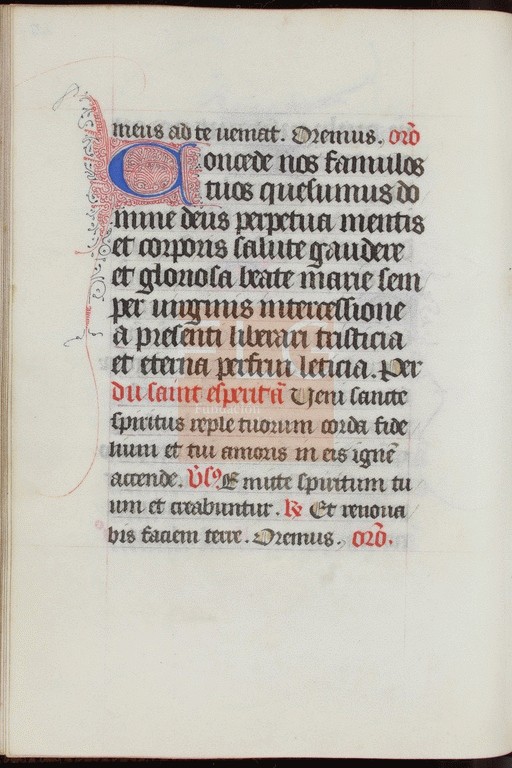 meus ad te ueniat. Oremus. orō
Concede nos famulos
tuos quesumus do
mine deus perpetua mentis
et corporis salute gaudere
et gloriosa beate marie sem
per uirginis intercessione
a presenti liberari tristicia
et eterna perfrui leticia. Per
du saint esperit ā Veni sancte
spiritus reple tuorum corda fide
lium et tui amoris in eis ignē
accende. Vs9 Emitte spiritum tu
um et creabuntur. R Et renoua
bis faciem terre. Oremus. orō.
Fundación